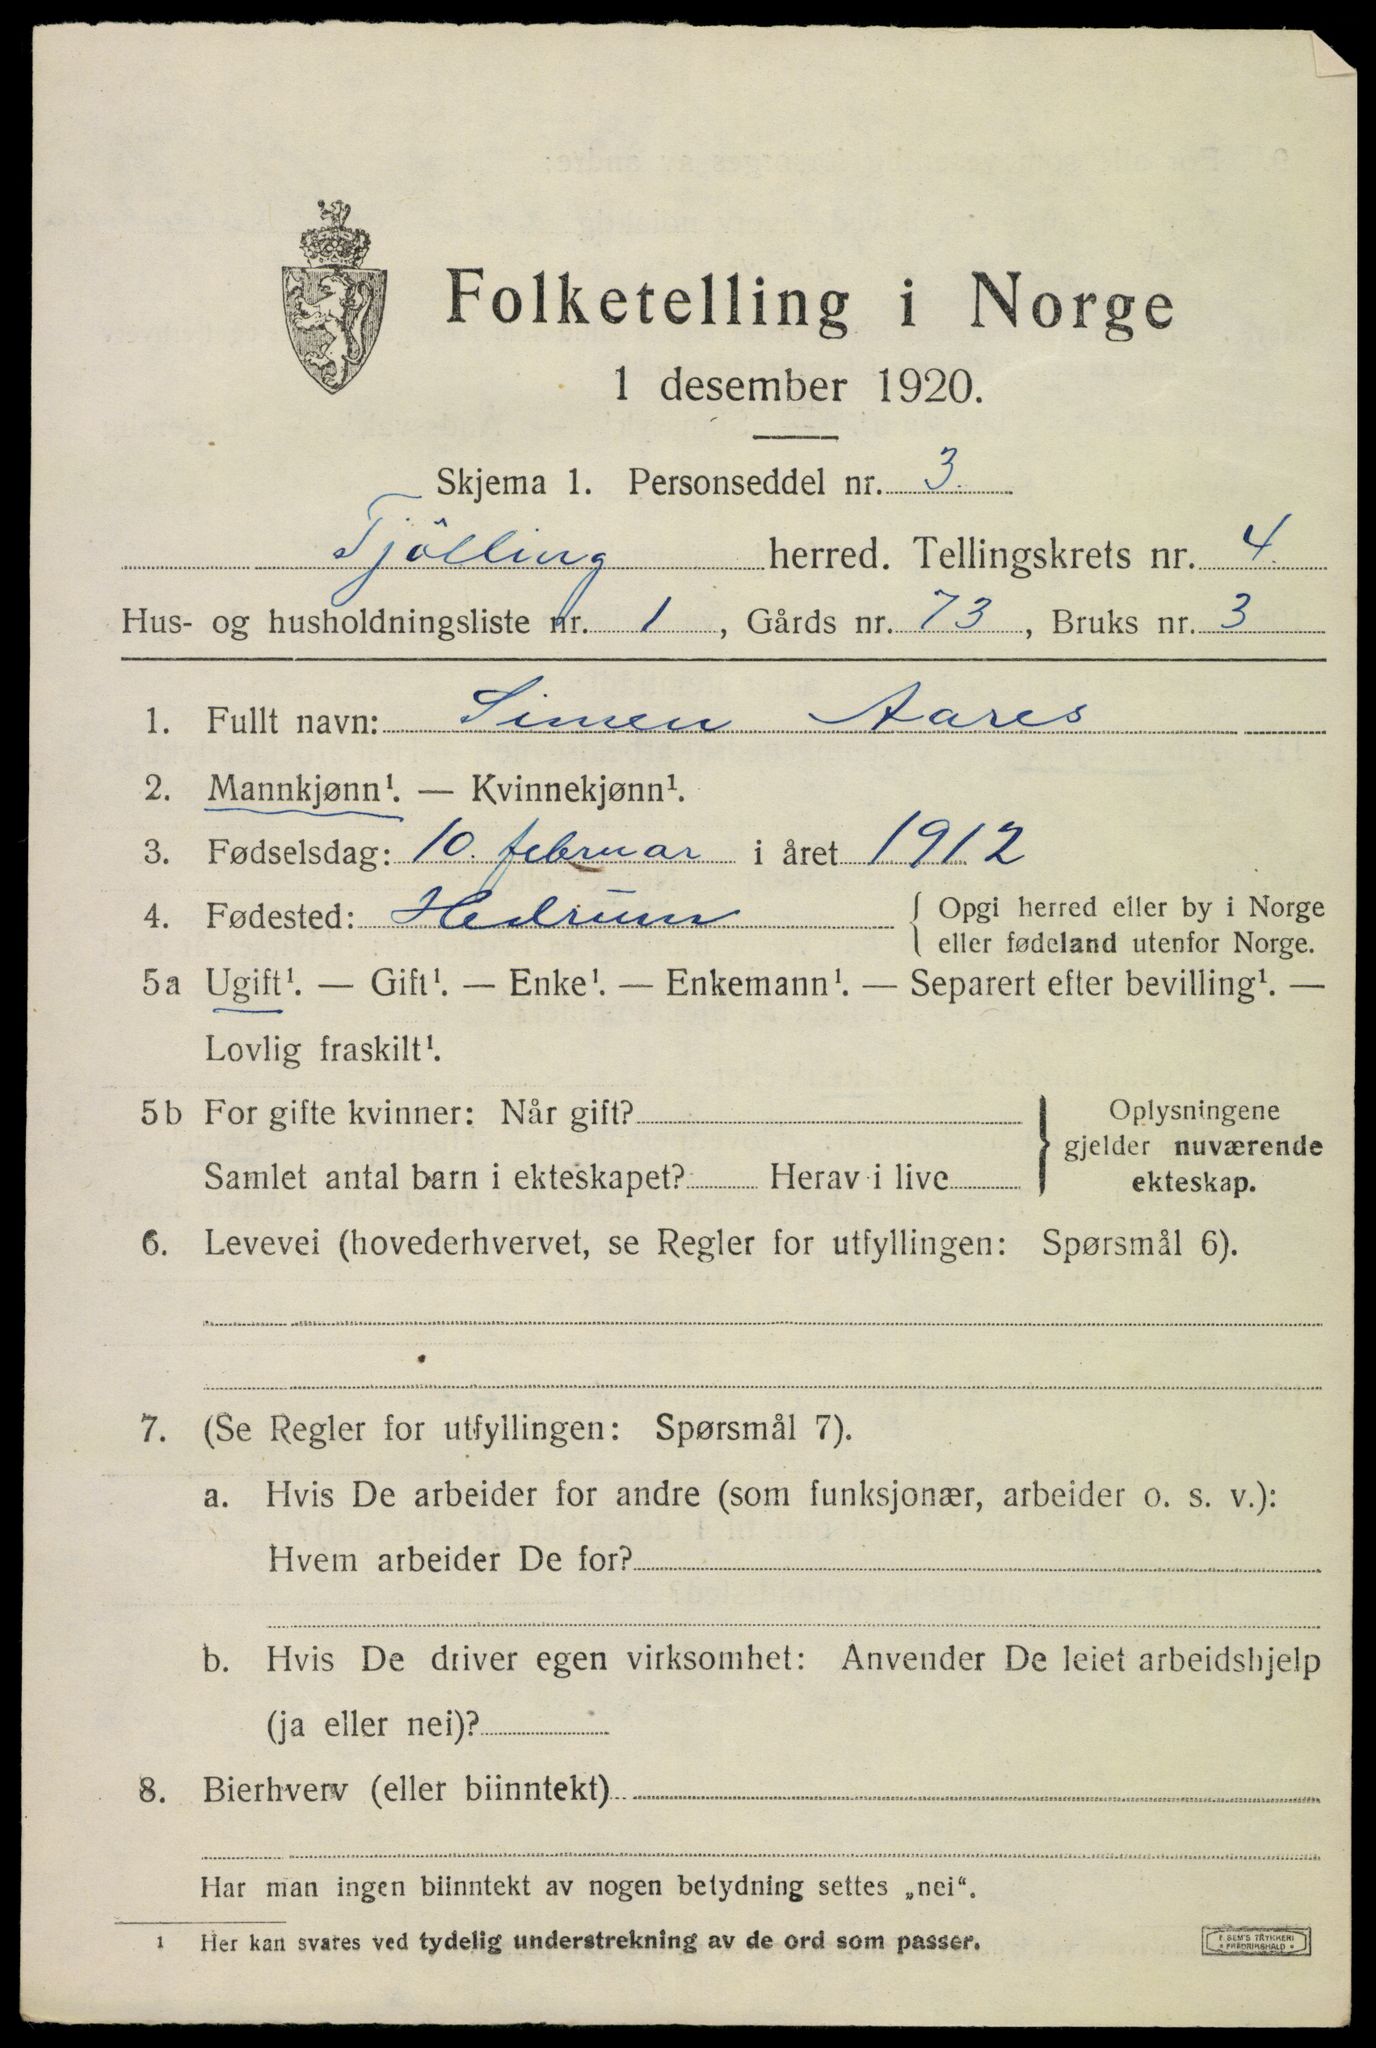 Folketelling i Norge
1 desember 1920.
Skjema 1. Personseddel nr. 3.
Tjölling herred. Tellingskrets nr. 4.
Hus- og husholdningsliste nr. 1, Gårds nr. 73, Bruks nr. 3
1. Fullt navn: Simen Aares
2. Mannkjønn¹. — Kvinnekjønn¹.
3. Fødselsdag: 10. februar i året 1912
4. Fødested: Hedrum { Opgi herred eller by i Norge
eller fødeland utenfor Norge.
5a Ugift¹. — Gift¹. — Enke¹. — Enkemann¹. — Separert efter bevilling¹. —
Lovlig fraskilt¹.
5b For gifte kvinner: Når gift? } Oplysningene
gjelder nuværende
Samlet antal barn i ekteskapet? Herav i live ekteskap.
6. Levevei (hovederhvervet, se Regler for utfyllingen: Spørsmål 6).
7. (Se Regler for utfyllingen: Spørsmål 7).
a. Hvis De arbeider for andre (som funksjonær, arbeider o. s. v.):
Hvem arbeider De for?
b. Hvis De driver egen virksomhet: Anvender De leiet arbeidshjelp
(ja eller nei)?
8. Bierhverv (eller biinntekt)
Har man ingen biinntekt av nogen betydning settes „nei“.
¹ Her kan svares ved tydelig understrekning av de ord som passer.
F. SEM'S TRYKKERI
• FREDRIKSHALD •